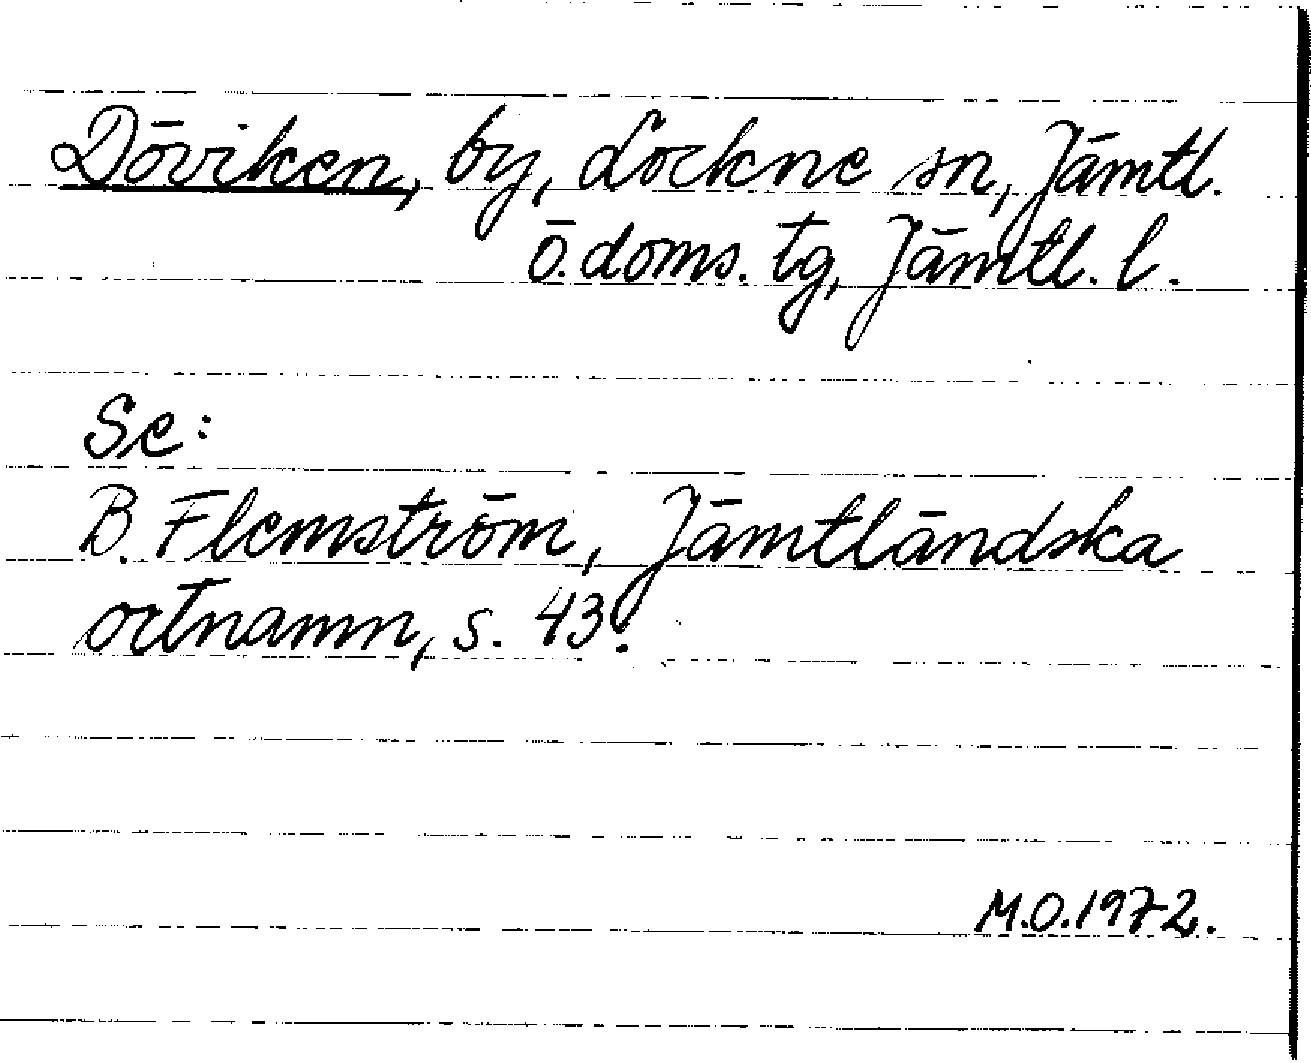 Döviken, by, Lockne sn, Jämtl.
ö. doms. tg, Jämtl. l.
Se:
B. Flemström, Jämtländska
ortnamn, s. 43.
M.O. 1972.